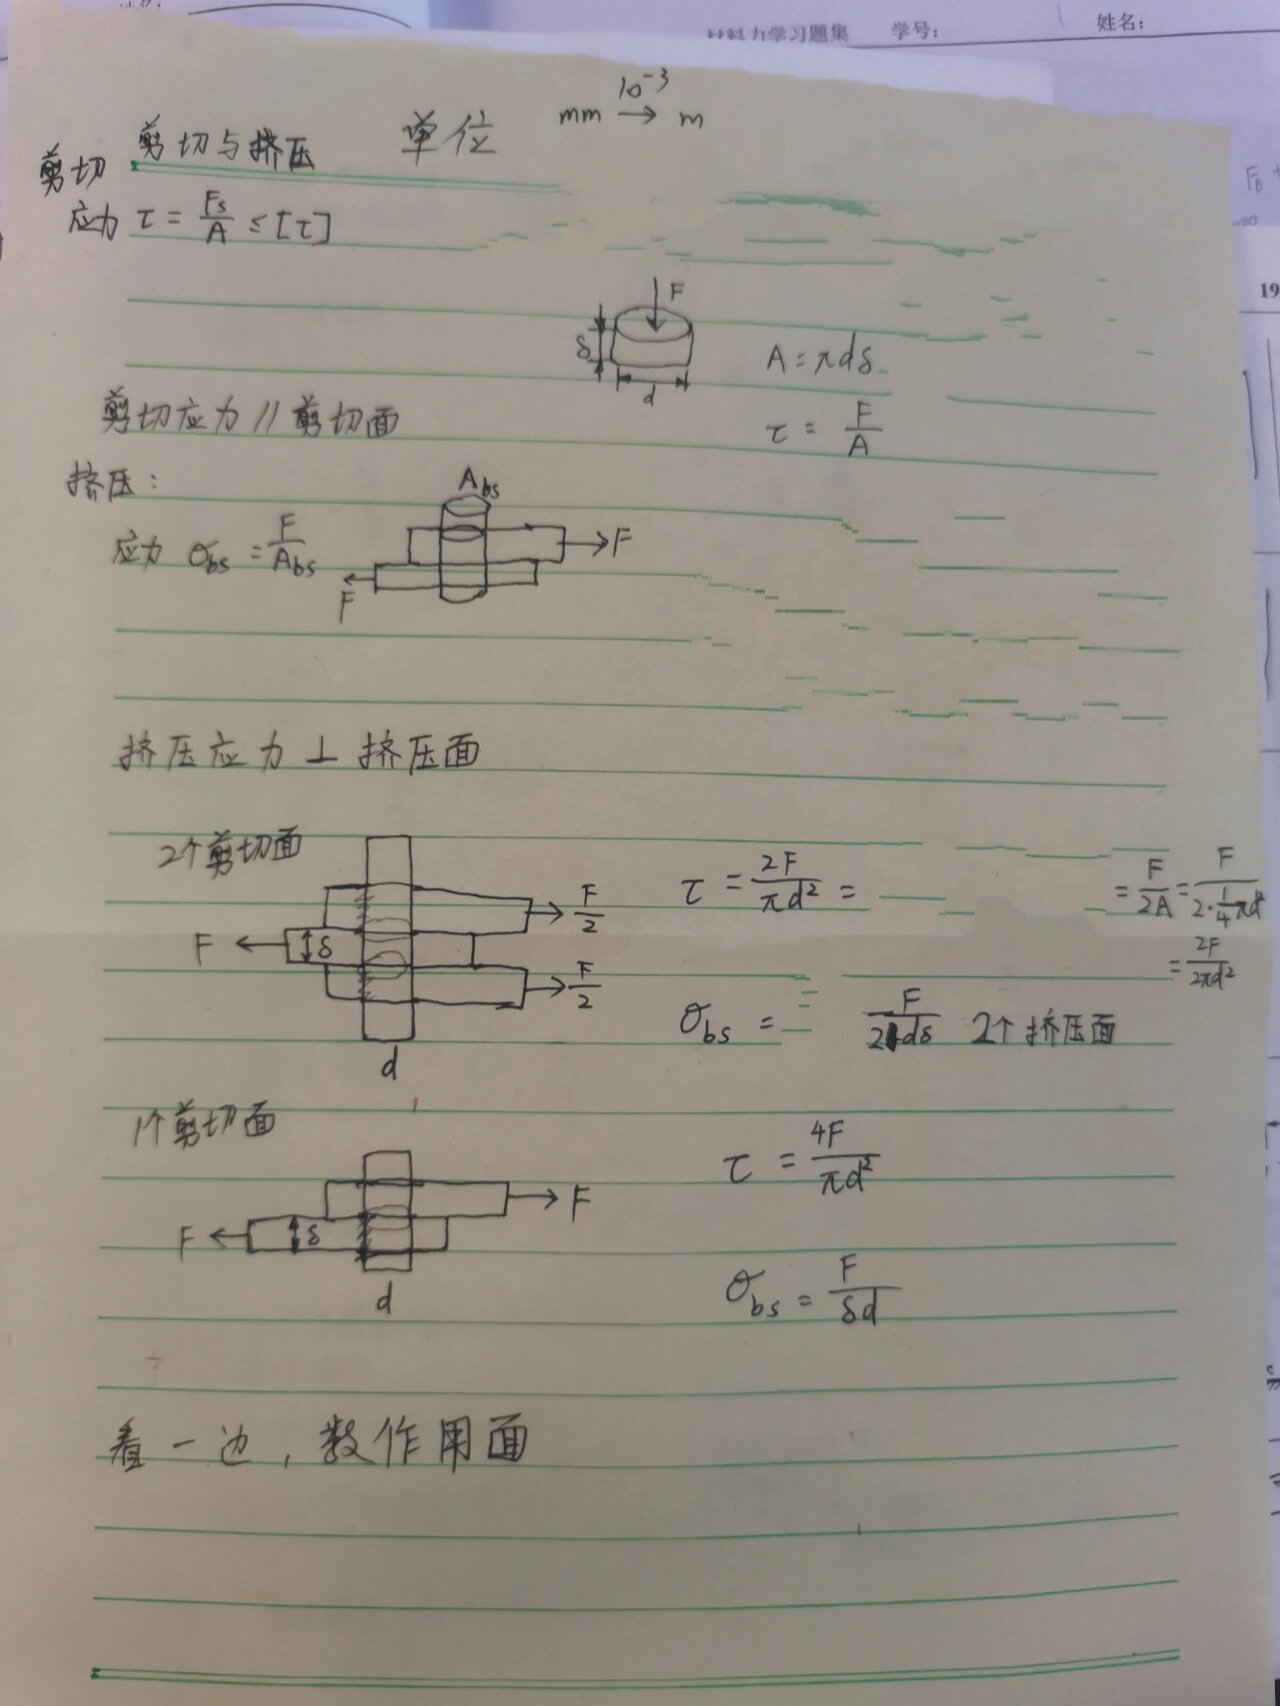 材料力学习题集 学号: 姓名:
mm 10⁻³→ m
剪切与挤压 单位
剪切
应力 τ = Fs/A ≤ [τ]
F
δ
d
A = πdδ
τ = F/A
剪切应力 // 剪切面
挤压:
Abs
应力 σbs = F/Abs
F
F
挤压应力 ⊥ 挤压面
2个剪切面
F δ F/2
F/2
d
τ = 2F/πd² = = F/2A = F/2·¼πd²
= 2F/2πd²
σbs = F/2dδ 2个挤压面
1个剪切面
F
F δ
d
τ = 4F/πd²
σbs = F/δd
看一边,数作用面
19